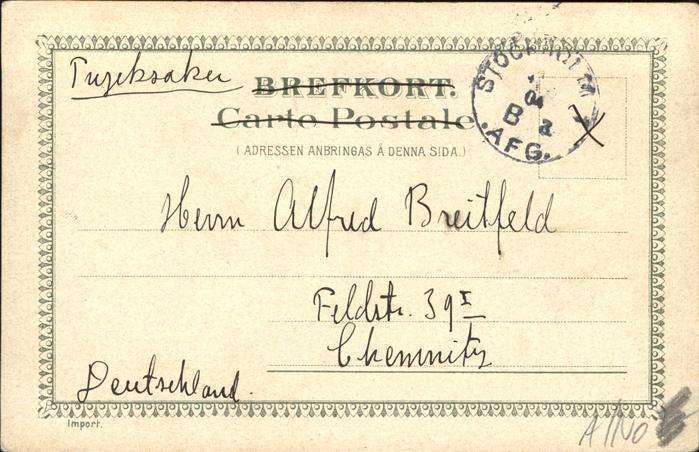 Trycksaker
BREFKORT.
Carte Postale
(ADRESSEN ANBRINGAS Å DENNA SIDA.)
STOCKHOLM
04
B 2
AFG.
X
Herrn Alfred Breitfeld
Feldstr. 39 I
Chemnitz
Deutschland.
Import.